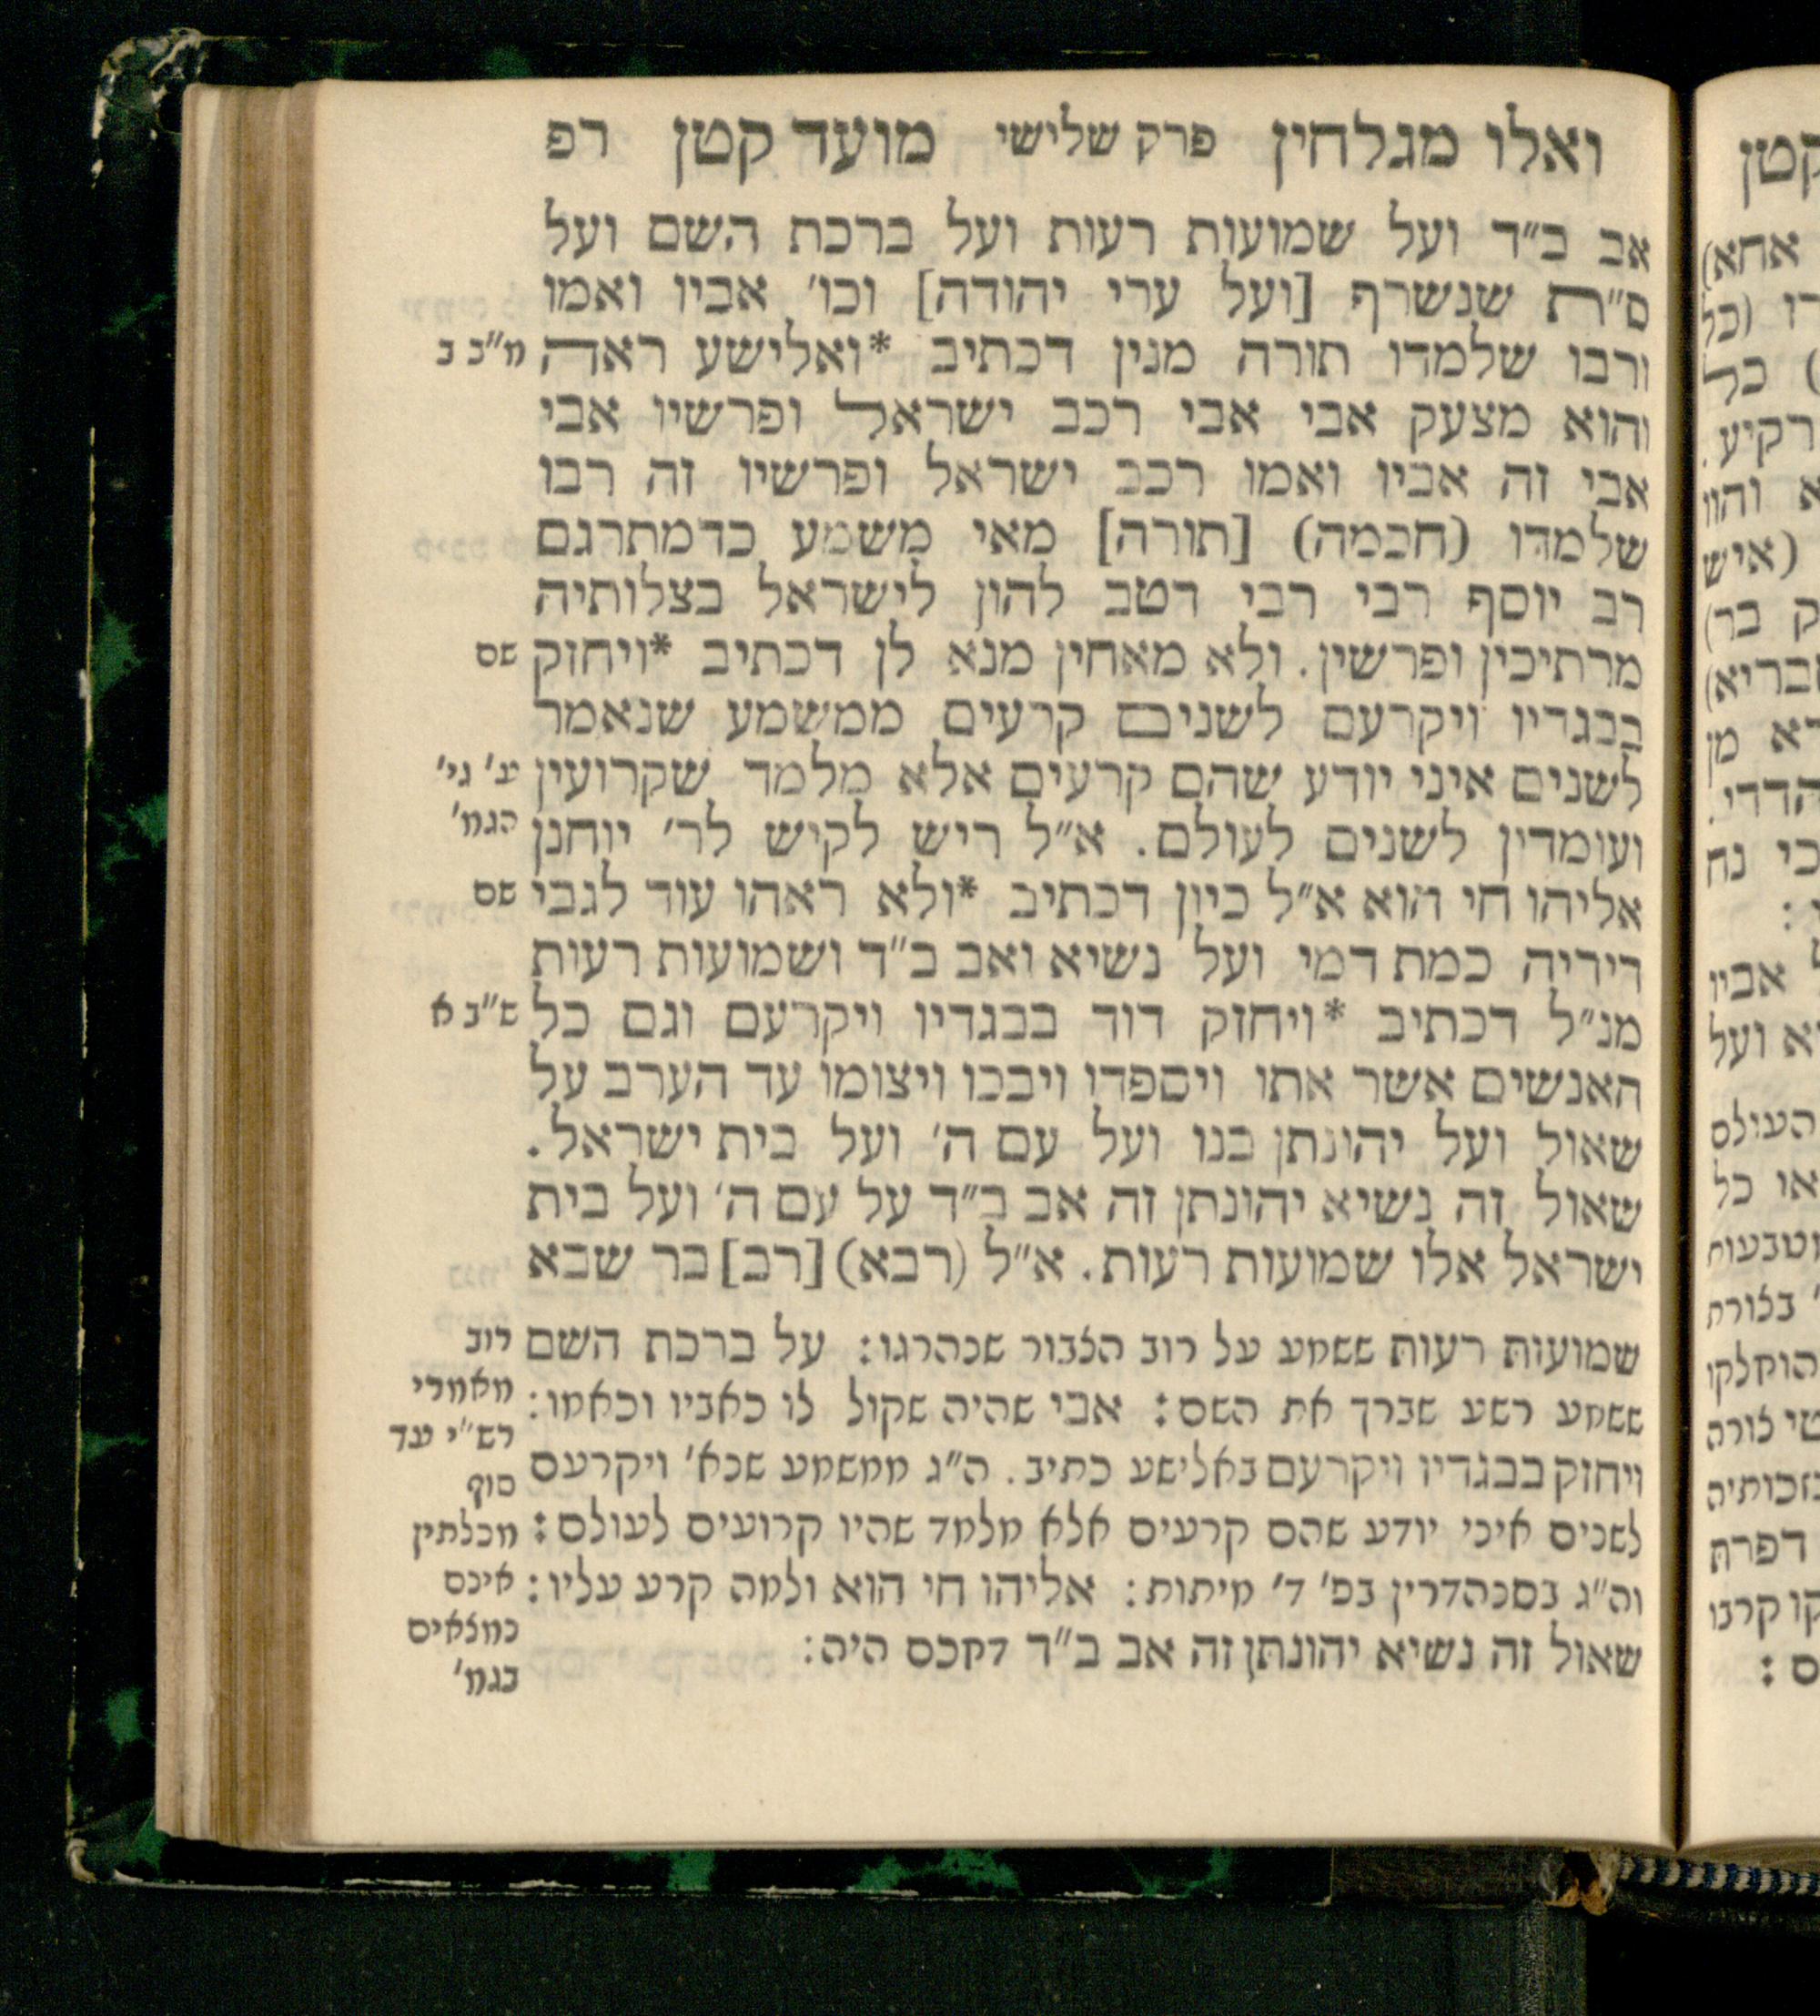 ואלו מגלחין פרק שלישי מועד קטן רפ
אב ב״ד ועל שמועות רעות ועל ברכת השם ועל
ס״ת שנשרף [ועל ערי יהודה] וכו׳ אביו ואמו
ורבו שלמדו תורה מנין דכתיב *ואלישע ראה
והוא מצעק אבי אבי רכב ישראל ופרשיו אבי
אבי זה אביו ואמו רכב ישראל ופרשיו זה רבו
שלמדו (חכמה) [תורה] מאי משמע כדמתרגם
רב יוסף רבי רבי דטב להון לישראל בצלותיה
מרתיכין ופרשין. ולא מאחין מנא לן דכתיב *ויחזק
בבגדיו ויקרעם לשנים קרעים ממשמע שנאמר
לשנים איני יודע שהם קרעים אלא מלמד שקרועין
ועומדין לשנים לעולם. א״ל ריש לקיש לר׳ יוחנן
אליהו חי הוא א״ל כיון דכתיב *ולא ראהו עוד לגבי
דידיה כמת דמי ועל נשיא ואב ב״ד ושמועות רעות
מנ״ל דכתיב *ויחזק דוד בבגדיו ויקרעם וגם כל
האנשים אשר אתו ויספדו ויבכו ויצומו עד הערב על
שאול ועל יהונתן בנו ועל עם ה׳ ועל בית ישראל.
שאול זה נשיא יהונתן זה אב ב״ד על עם ה׳ ועל בית
ישראל אלו שמועות רעות. א״ל (רבא) [רב] בר שבא
שמועות רעות ששמע על רוב הצבור שנהרגו: על ברכת השם
ששמע רשע שברך את השם: אבי שהיה שקול לו כאביו וכאמו:
ויחזק בבגדיו ויקרעם באלישע כתיב. ה״ג ממשמע שנא׳ ויקרעם
לשנים איני יודע שהם קרעים אלא מלמד שהיו קרועים לעולם:
וה״ג בסנהדרין בפ׳ ד׳ מיתות: אליהו חי הוא ולמה קרע עליו:
שאול זה נשיא יהונתן זה אב ב״ד דמכס היה:
מ״ב ב
שם
ע׳ גי׳
הגמ׳
שם
ש״ב א
רוב
מאמרי
רש״י עד
סוף
מכלתין
אינם
נמצאים
בגמ׳
קטן
אחא)
(כל
) כל
רקיע.
והוו
(איש
בר)
מן
הדדי.
כי נח
אביו
ועל
העולם
כל
בצורת
צורה
דפרת
קרבו